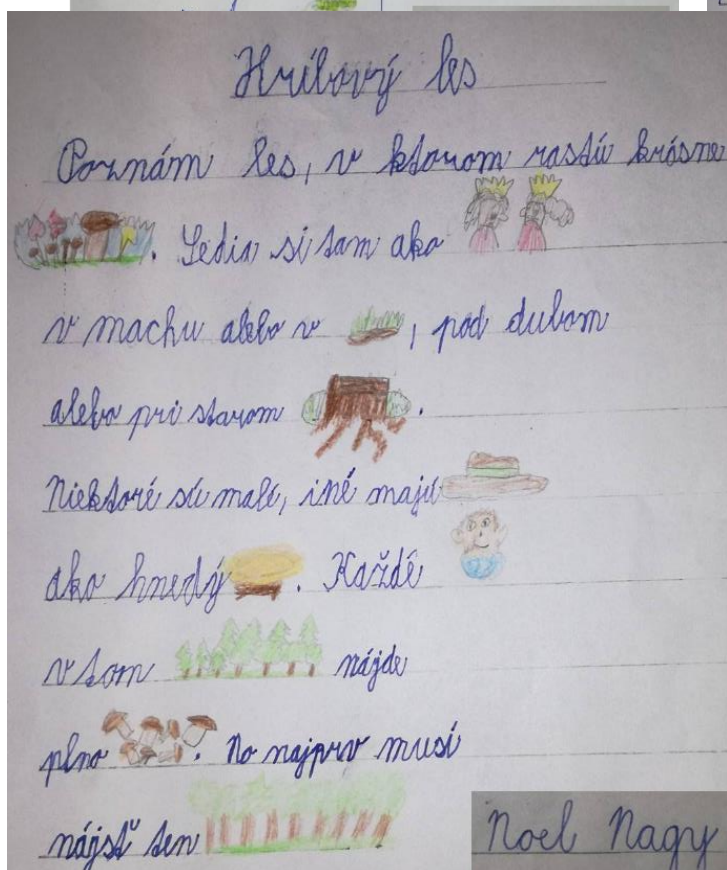 Hríbový les
Poznám les, v ktorom rastú krásne
. Sedia si tam ako
v machu alebo v , pod dubom
alebo pri starom .
Niektoré sú malé, iné majú
ako hnedý . Každé
v tom nájde
plno . No najprv musí
nájsť ten
Noel Nagy